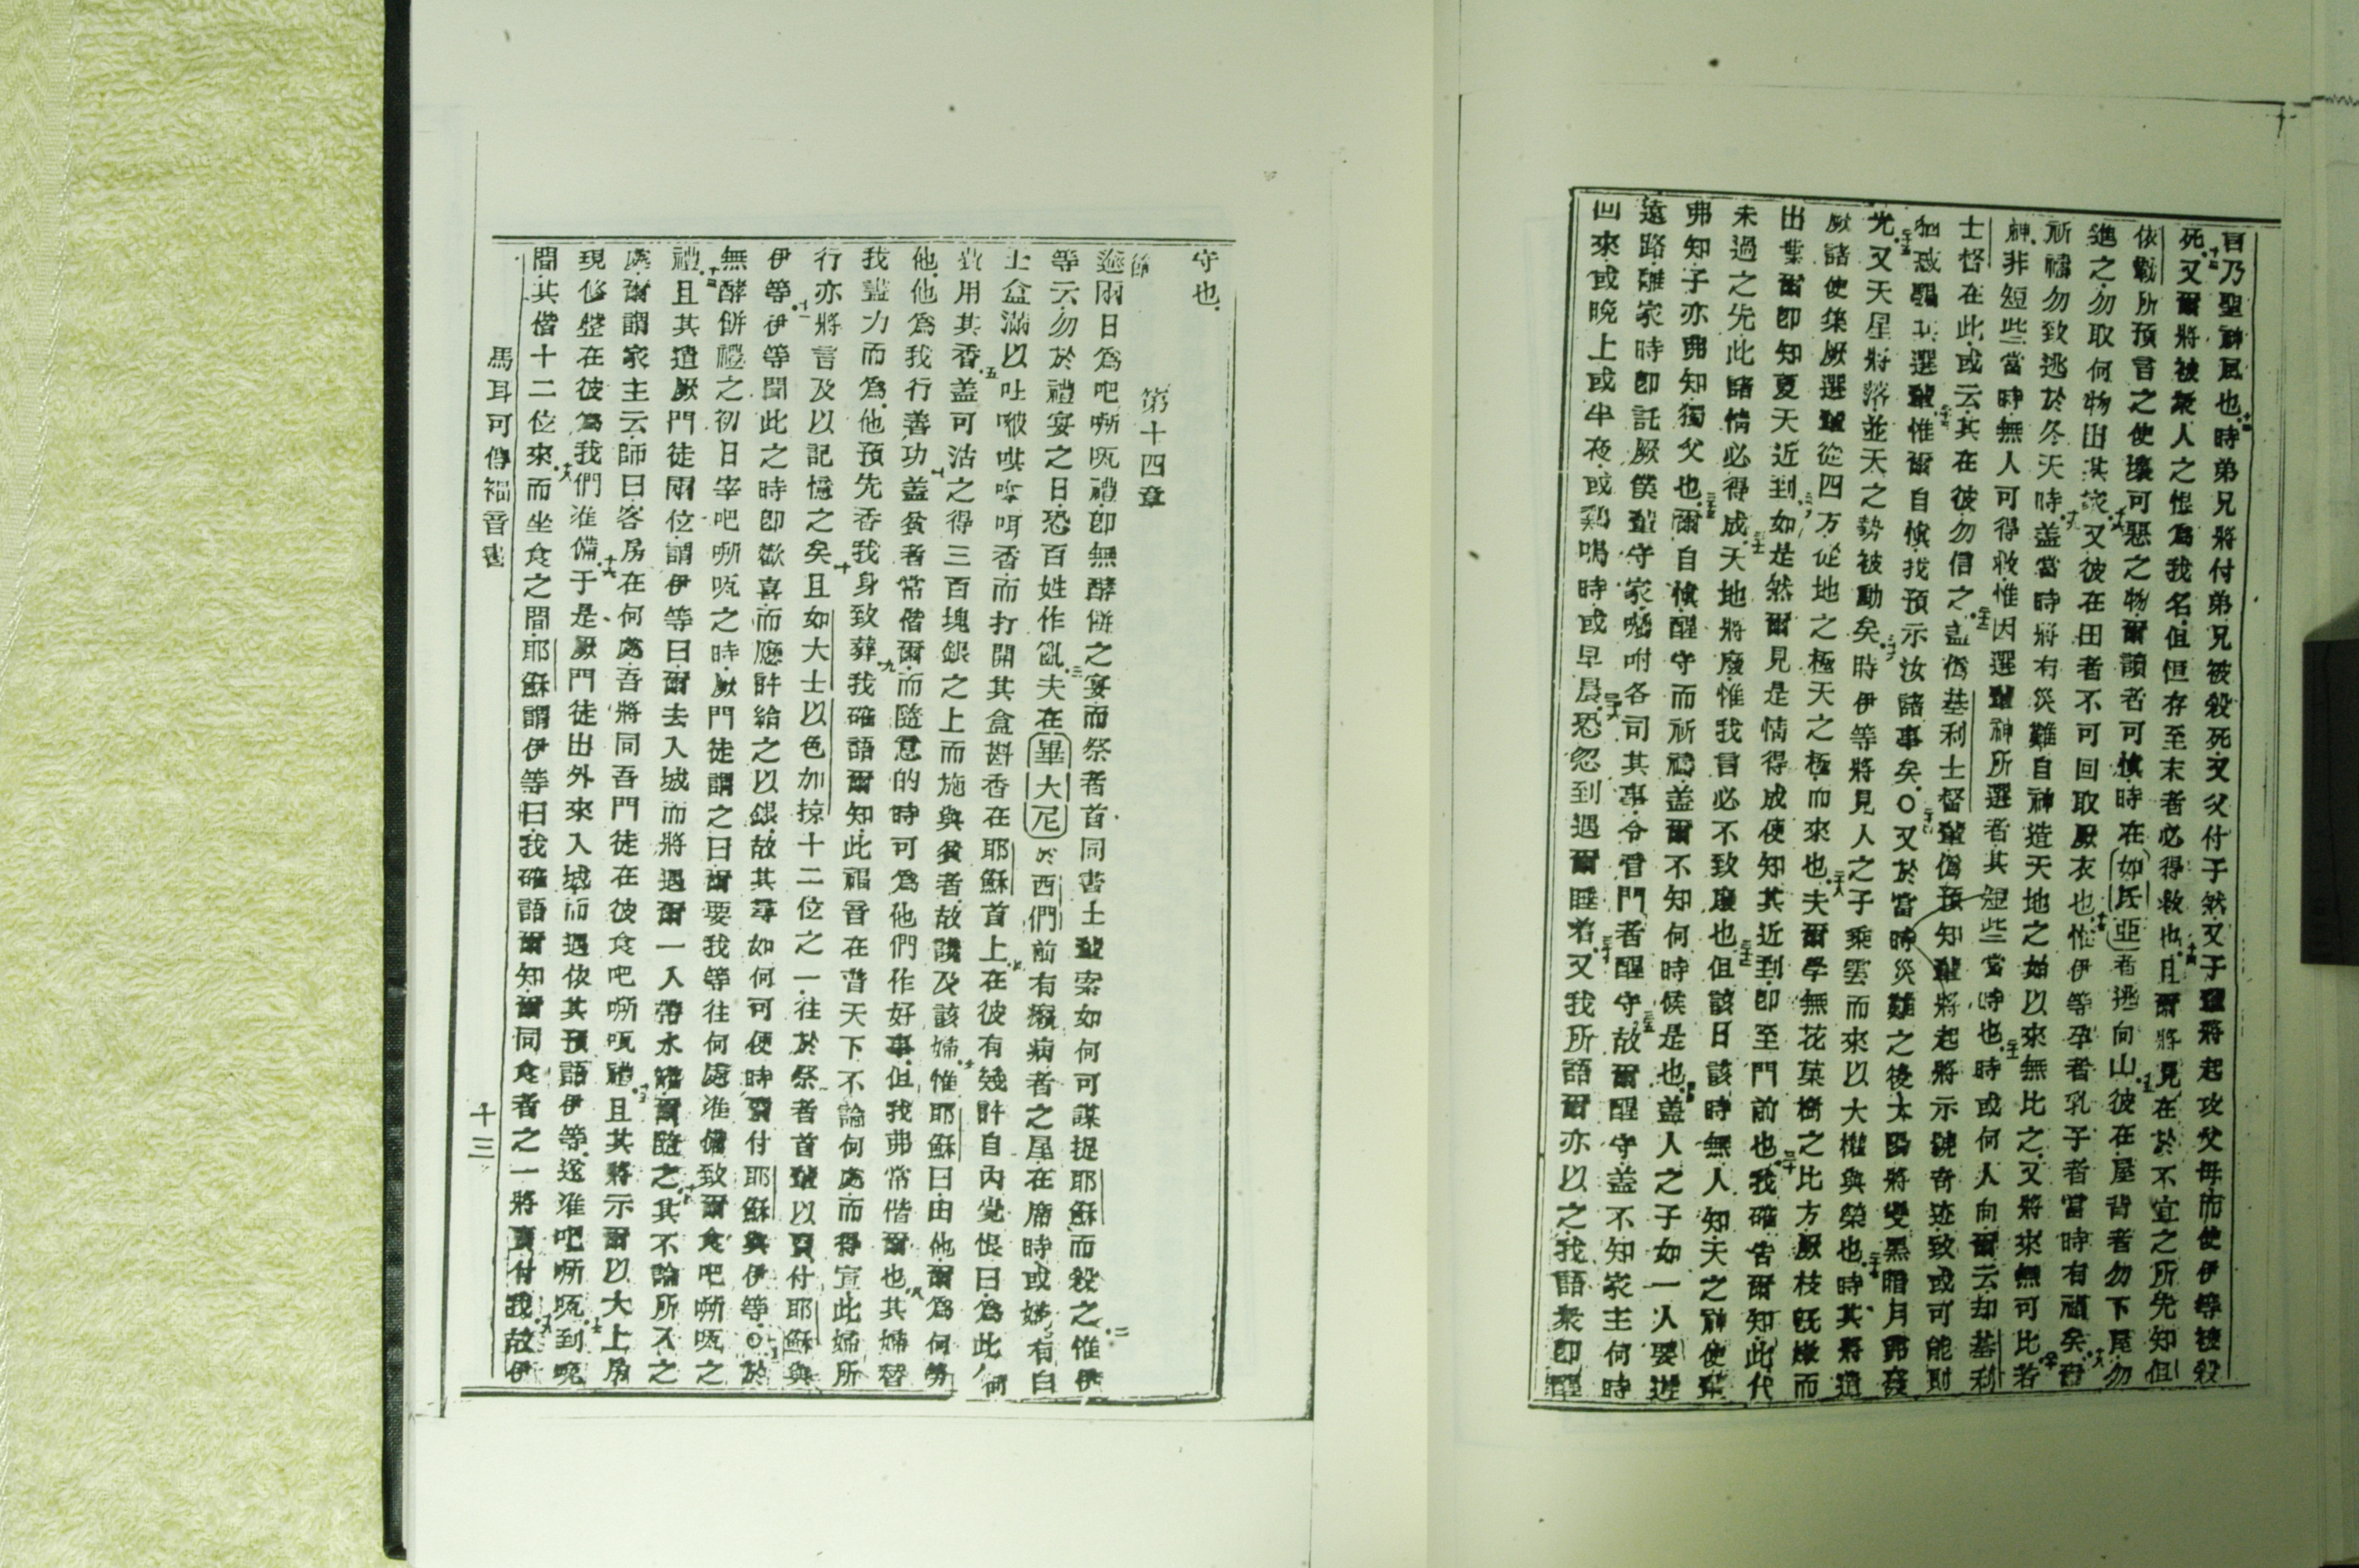 言乃聖神風也時弟兄將付弟兄被殺死又父付子然又子輩將起攻父母而使伊等被殺
死又爾將被衆人之恨爲我名但但存至末者必得救也且爾將見在於不宜之所先知但
依勒所預言之使壞可惡之物爾讀者可慎時在如氏亞者逃向山彼在屋背者勿下屋勿
進之勿取何物出其家又彼在田者不可回取厥衣也惟伊等孕者乳子者當時有禍矣
祈禱勿致逃於冬天時蓋當時將有災難自神造天地之始以來無比之又將來無可比若
神非短些當時無人可得救惟因選輩神所選者其短些當時也時或何人向爾云却基利
士督在此或云其在彼勿信之蓋僞基利士督輩僞預知輩將起將示號奇迹致或可能則
惑騙其選輩惟爾自慎我預示汝諸事矣○又於當時災難之後太陽將變黑暗月弗發
光又天星將落並天之勢被動矣時伊等將見人之子乘雲而來以大權與榮也時其將遣
厥諸使集厥選輩從四方從地之極天之極而來也夫爾學無花菓樹之比方厥枝旣嫩而
出葉爾卽知夏天近到如是然爾見是情得成便知其近到卽至門前也我確告爾知此代
未過之先此諸情必得成天地將廢惟我言必不致廢也但該日該時無人知天之神使輩
弗知子亦弗知獨父也爾自慎醒守而祈禱蓋爾不知何時候是也蓋人之子如一人要遊
遠路離家時卽託厥僕輩守家囑咐各司其事令看門者醒守故爾醒守蓋不知家主何時
回來或晚上或半夜或鷄鳴時或早晨恐忽到遇爾睡着又我所語爾亦以之我語衆卽醒
守也
第十四章
迨兩日爲吧嘶咓禮卽無酵餅之宴而祭者首同書士輩索如何可謀捉耶穌而殺之惟伊
等云勿於禮宴之日恐百姓作亂夫在畢大尼於西們前有癩病者之屋在席時或婦有白
士盒滿以吐㗶哄㖇咡香而打開其盒斟香在耶穌首上在彼有幾許自內覺恨曰爲此何
費用其香蓋可沽之得三百塊銀之上而施與貧者故譏及該婦惟耶穌曰由他爾爲何勞
他他爲我行善功蓋貧者常偕爾而隨意的時可爲他們作好事但我弗常偕爾也其婦替
我盡力而爲他預先香我身致葬我確語爾知此福音在普天下不論何處而得宣此婦所
行亦將言及以記憶之矣且如大士以色加掠十二位之一往於祭者首輩以賣付耶穌與
伊等伊等聞此之時卽歡喜而應許給之以銀故其尋如何可便時賣付耶穌與伊等○於
無酵餅禮之初日宰吧嘶咓之時厥門徒謂之曰爾要我等往何處准備致爾食吧嘶咓之
禮且其遣厥門徒兩位謂伊等曰爾去入城而將遇爾一人帶水罐爾隨之其不論所入之
處爾謂家主云師曰客房在何處吾將同吾門徒在彼食吧嘶咓禮且其將示爾以大上房
現修整在彼爲我們准備于是厥門徒出外來入城而遇依其預語伊等遂准吧嘶咓到晚
間其偕十二位來而坐食之間耶穌謂伊等曰我確語爾知爾同食者之一將賣付我故伊
馬耳可傳福音書
十三